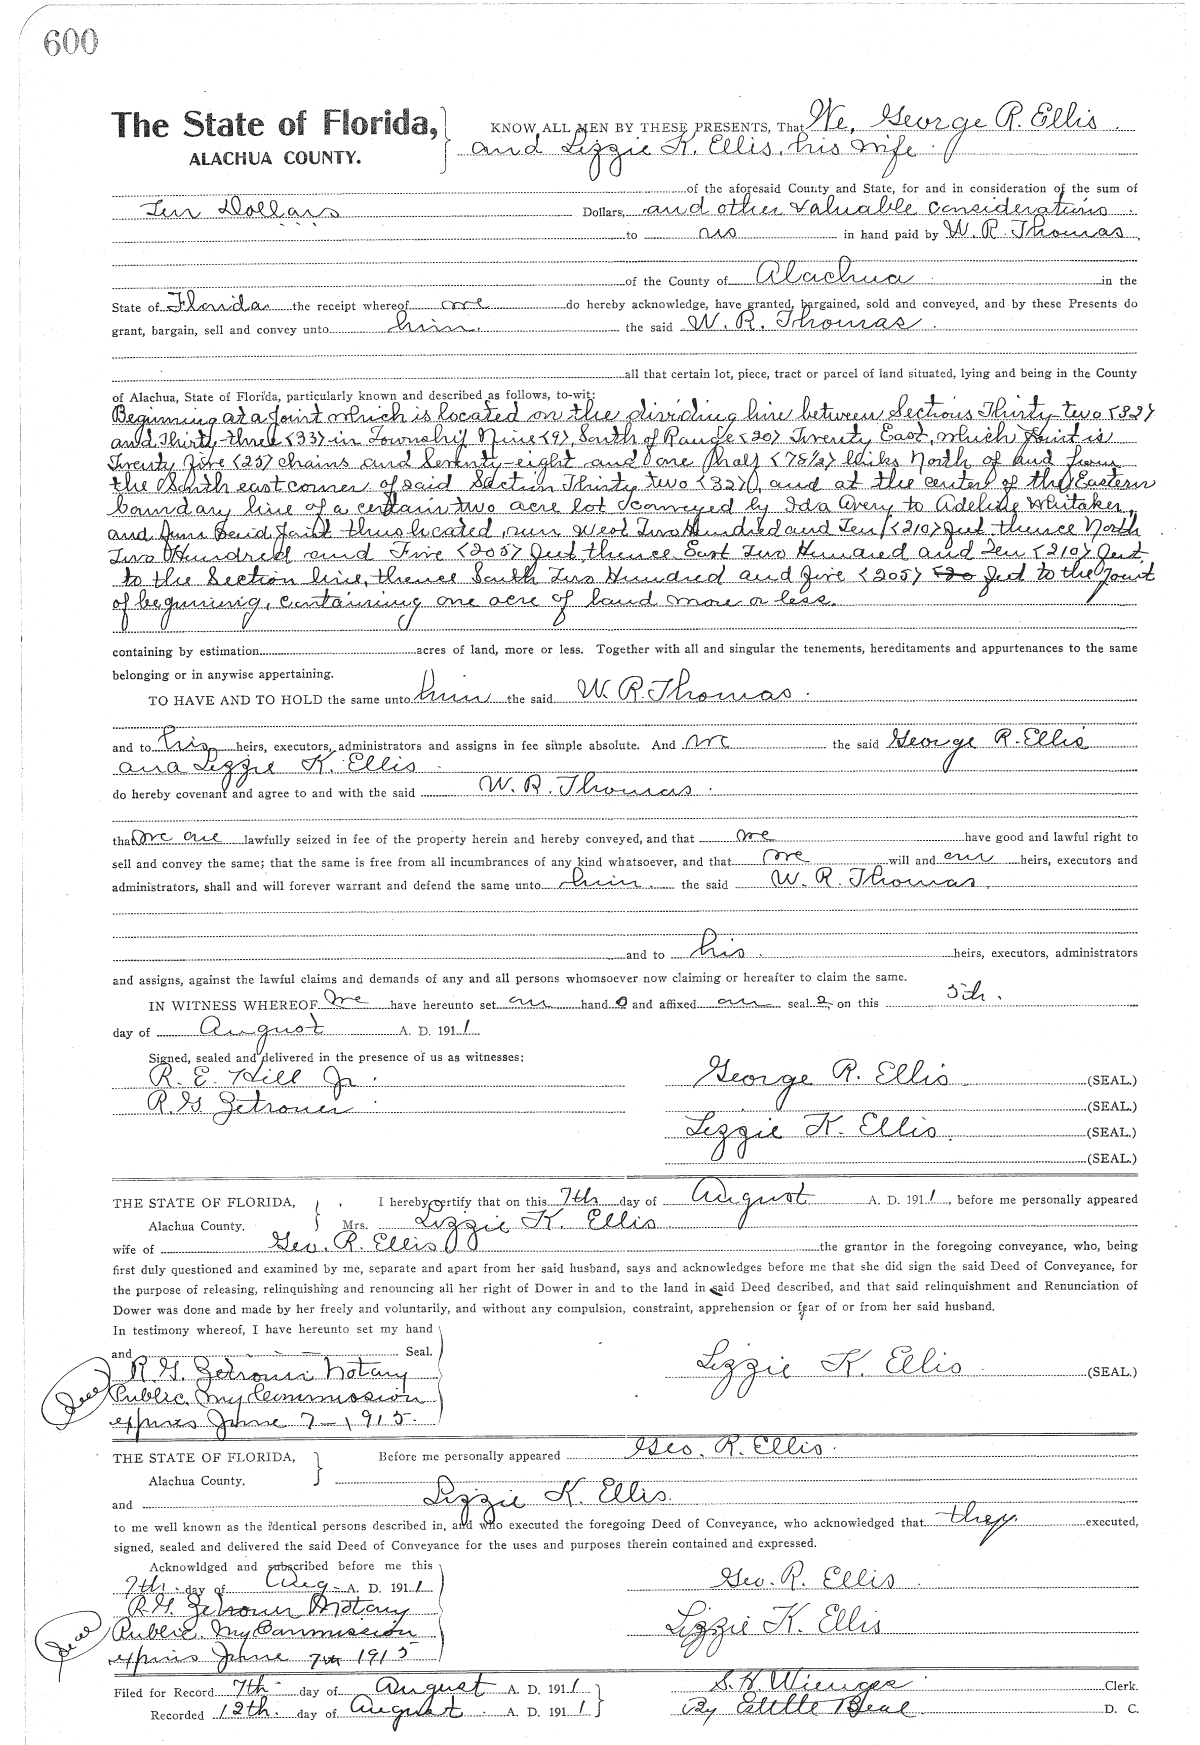 600
The State of Florida, KNOW ALL MEN BY THESE PRESENTS, That We, George R. Ellis
ALACHUA COUNTY. and Lizzie K. Ellis, his wife
of the aforesaid County and State, for and in consideration of the sum of
Ten Dollars Dollars, and other valuable considerations
to us in hand paid by W. R. Thomas,
of the County of Alachua in the
State of Florida the receipt whereof we do hereby acknowledge, have granted, bargained, sold and conveyed, and by these Presents do
grant, bargain, sell and convey unto him the said W. R. Thomas
all that certain lot, piece, tract or parcel of land situated, lying and being in the County
of Alachua, State of Florida, particularly known and described as follows, to-wit:
Beginning at a point which is located on the dividing line between Sections Thirty two <32>
and Thirty-three <33> in Township Nine <9>, South of Range <20> Twenty East, which point is
Twenty five <25> chains and Seventy-eight and one half <78½> links North of and from
the South east corner of said Section Thirty two <32>, and at the center of the Eastern
boundary line of a certain two acre lot conveyed by Ida Avery to Adelide Whitaker,
and from said point thus located, run West Two Hundred and Ten <210> feet thence North
Two Hundred and Five <205> feet, thence East Two Hundred and Ten <210> feet
to the Section line, thence South Two Hundred and five <205> feet to the point
of beginning, containing one acre of land more or less.
containing by estimation acres of land, more or less. Together with all and singular the tenements, hereditaments and appurtenances to the same
belonging or in anywise appertaining.
TO HAVE AND TO HOLD the same unto him the said W. R. Thomas
and to his heirs, executors, administrators and assigns in fee simple absolute. And we the said George R. Ellis
and Lizzie K. Ellis
do hereby covenant and agree to and with the said W. R. Thomas
that we are lawfully seized in fee of the property herein and hereby conveyed, and that we have good and lawful right to
sell and convey the same; that the same is free from all incumbrances of any kind whatsoever, and that we will and our heirs, executors and
administrators, shall and will forever warrant and defend the same unto him the said W. R. Thomas
and to his heirs, executors, administrators
and assigns, against the lawful claims and demands of any and all persons whomsoever now claiming or hereafter to claim the same.
IN WITNESS WHEREOF we have hereunto set our hand s and affixed our seal s, on this 5th.
day of August A. D. 1911
Signed, sealed and delivered in the presence of us as witnesses:
R. E. Hill Jr. George R. Ellis (SEAL.)
R. G. Zetrouer (SEAL.)
Lizzie K. Ellis (SEAL.)
(SEAL.)
THE STATE OF FLORIDA, I hereby certify that on this 7th day of August A. D. 1911, before me personally appeared
Alachua County. Mrs. Lizzie K. Ellis
wife of Geo. R. Ellis the grantor in the foregoing conveyance, who, being
first duly questioned and examined by me, separate and apart from her said husband, says and acknowledges before me that she did sign the said Deed of Conveyance, for
the purpose of releasing, relinquishing and renouncing all her right of Dower in and to the land in said Deed described, and that said relinquishment and Renunciation of
Dower was done and made by her freely and voluntarily, and without any compulsion, constraint, apprehension or fear of or from her said husband.
In testimony whereof, I have hereunto set my hand
and Seal.
R. G. Zetrouer Notary Lizzie K. Ellis (SEAL.)
Seal Public, My Commission
expires June 7 - 1915.
THE STATE OF FLORIDA, Before me personally appeared Geo. R. Ellis
Alachua County.
and Lizzie K. Ellis
to me well known as the identical persons described in, and who executed the foregoing Deed of Conveyance, who acknowledged that they executed,
signed, sealed and delivered the said Deed of Conveyance for the uses and purposes therein contained and expressed.
Acknowldged and subscribed before me this
7th. day of Aug- A. D. 1911 Geo. R. Ellis
R. G. Zetrouer Notary
Seal Public. My Commission Lizzie K. Ellis
expires June 7th 1915
Filed for Record 7th day of August A. D. 1911 S. H. Wienges Clerk.
Recorded 12th. day of August A. D. 1911 By Beal D. C.